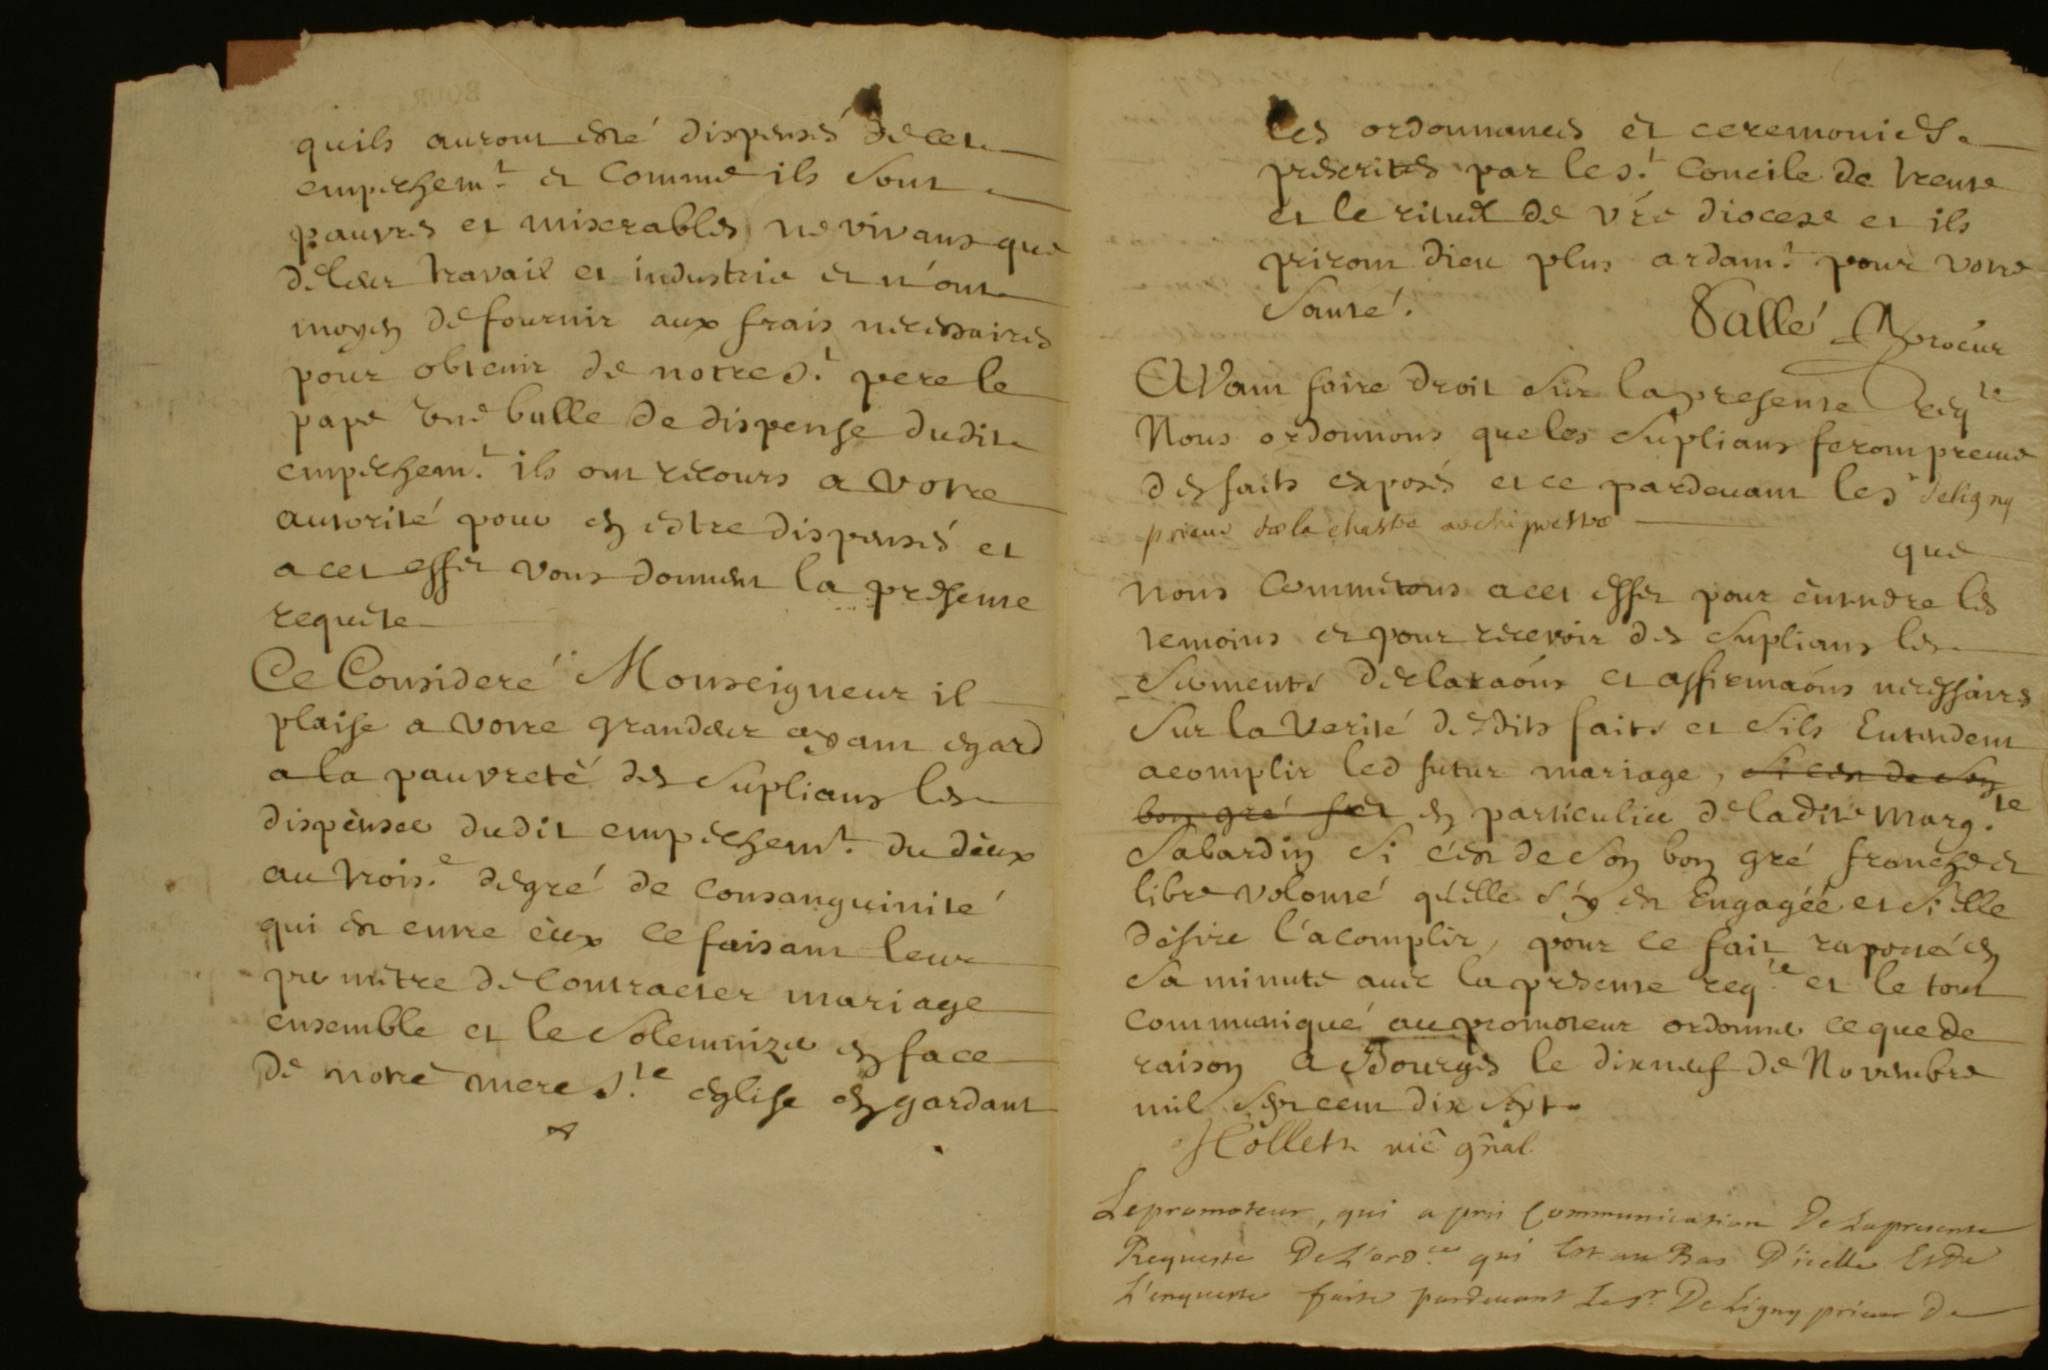 quils auront esté dispensés de cet
empeschem.t et comme ils sont
pauvres et miserables ne vivans que
de leur travail et industrie et n'ont
moyen de fournir aux frais necessaires
pour obtenir de notre s.t pere le
pape une bulle de dispense dudit
empeschem.t ils ont recours a votre
autorité pour en estre dispensés et
a cet effet vous donnent la presente
requete
Ce Consideré Monseigneur il
plaise a votre grandeur ayant egard
a la pauvreté des suplians les
dispenser dudit empeschem.t du deux
au trois.e degré de consanguinité
qui est entre eux ce faisant leur
permettre de contracter mariage
ensemble et le solemnizer en face
de notre mere s.te eglise en gardant
les ordonnances et ceremonies
prescrites par le s.t concile de trente
et le rituel de vre diocese et ils
priront dieu plus ardam.t pour votre
santé.
Sallé procur
Avant faire droit sur la presente req.te
Nous ordonnons que les suplians feront preuve
des faits exposés et ce pardevant le sr deligny
prieur de la chastre archiprestre
que
nous commetons a cet effet pour entendre les
temoins et pour recevoir des suplians les
serments declaraons et affirmaons necessaires
sur la verité desdits faits et sils Entendent
acomplir led futur mariage, si cest de son
bon gré fr et en particulier de ladite Marg.te
Sabardin si c'est de son bon gré franche et
libre volonté qu'elle s'y est Engagée et si elle
desire l'acomplir, pour ce fait raporté en
sa minute avec la presente req.te et le tout
communiqué au promoteur ordonner ce que de
raison a Bourges le dixneuf de Novembre
mil sept cent dix sept
Hollet vic gnal
Le promoteur, qui a pris Communication De La presente
Requeste De L'ord.ce qui Est au Bas D'icelle Et De
L'enqueste faite pardevant Le Sr. De Ligny prieur De